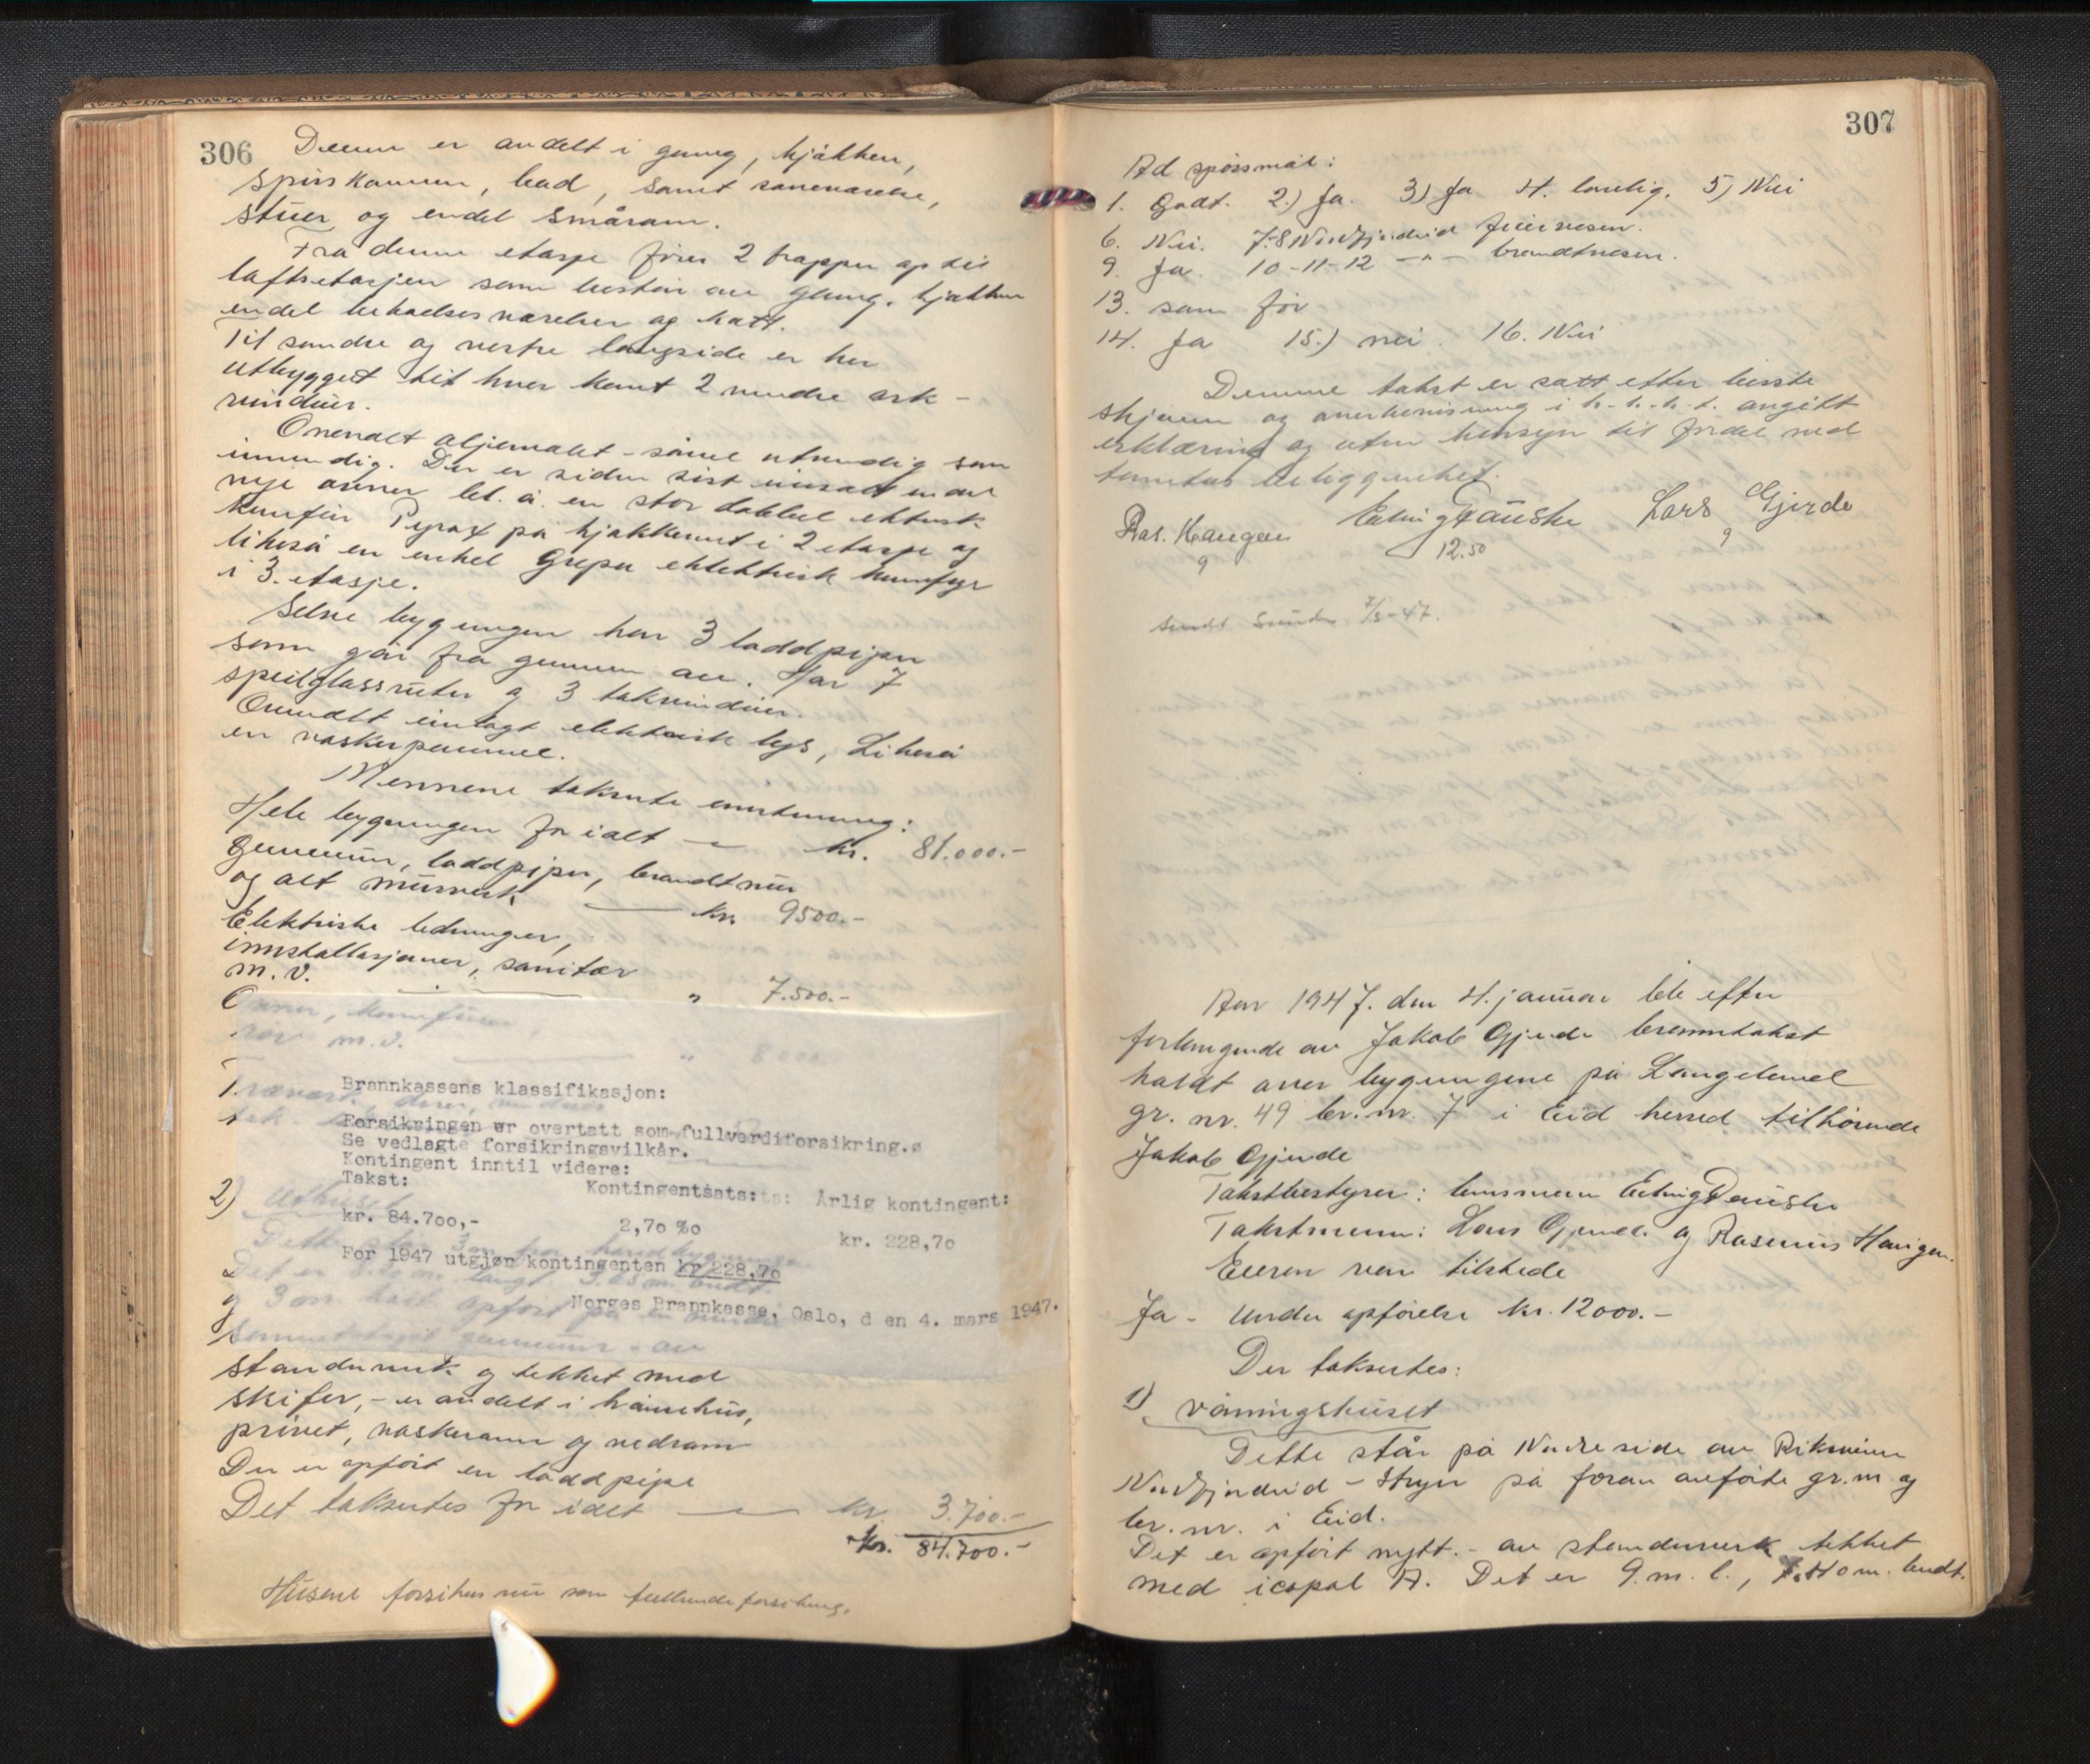 306
Denne er avdelt i gang, kjøkken,
spiskammer, bad, samt soveværelse,
stuer og endel smårom.
Fra denne etasje fører 2 trapper op til
loftsetasjen som består av gang, kjøkken
endel beboelsesværelser og kott.
Til søndre og vestre langside er her
utbygget til hver kant 2 mindre ark-
vinduer.
Overalt oljemalt - såvel utvendig som
innvendig. Der er siden sist innsatt endel
nye ovner bl. a. en stor dobbel elektrisk
komfür Pyrox på kjøkkenet i 2 etasje og
likeså en enkel Grepa elektrisk komfyr
i 3. etasje.
Selve bygningen har 3 loddpiper
som går fra grunnen av. Har 7
speilglassruter og 3 takvinduer.
Overalt innlagt elektrisk lys, Likeså
en vaskerpumpe.
Mennene takserte enstemmig:
Hele bygningen for ialt — kr. 81.000.-
Grunnmur, loddpiper, brandtmur
og alt murverk — kr. 9500.-
Elektriske ledninger,
innstallasjoner, sanitær
m.v. — " 7.500.-
Ovner, komfürer
rør m.v. — " 8000
Træverk, dører, vinduer
tak
Brannkassens klassifikasjon:
Forsikringen er overtatt som fullverdiforsikring.
Se vedlagte forsikringsvilkår.
Kontingent inntil videre:
Takst: Kontingentsats: Årlig kontingent:
2) Uthuset
kr. 84.700,- 2,70 %o kr. 228,70
Dette står
For 1947 utgjør kontingenten kr 228,70
Det er m. langt
Norges Brannkasse, Oslo, d en 4. mars 1947.
og 3 m. høit opført på en
grunnmur - av
standverk og tekket med
skifer, - er avdelt i hønsehus,
privet, vaskerom og vedrom
Der er opført en loddpipe
Det taksertes for ialt — kr. 3.700.-
kr. 84.700.-
Husene forsikres nu som fullverdiforsikring.
307
Ad spørsmål:
1. Godt. 2.) Ja. 3) Ja 4. lovlig. 5) Nei
6. Nei. 7-8 Nordfjordeid feiervesen.
9. Ja. 10-11-12 -"- brandtvesen.
13. som før
14. Ja 15.) nei. 16. Nei
Denne takst er satt efter beste
skjønn og overbevisning i h. t. h. t. avgitt
erklæring og uten hensyn til fordel ved
tomtens beliggenhet.
Ras. Haugen Erling Fauske Lars Gjerde
9 12.50 9
sendt Sunde 7/3-47.
Aar 1947. den 4. januar ble efter
forlangende av Jakob Gjerde branntakst
holdt over bygningene på Langeland
gr. nr. 49 br. nr. 7 i Eid herred tilhørende
Jakob Gjerde
Takstbestyrer: lensmann Erling Fauske
Takstmenn: Lars Gjerde og Rasmus Haugen.
Eieren var tilstede
Ja - Under opførelse kr. 12000.-
Der taksertes:
1) Våningshuset
Dette står på Nedre side av Riksveien
Nordfjordeid - Stryn på foran anførte gr. nr. og
br. nr. i Eid.
Det er opført nytt. - av stenderverk tekket
med icopal A. Det er 9. m. l., 7.40 m. bredt.